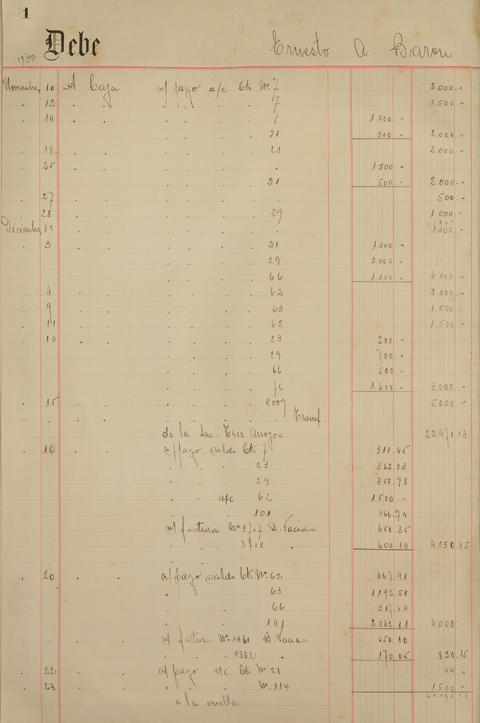 1
1930 Debe Ernesto A. Baron
Noviembre 10 A Caja m/pago a/c Cta Nº 7 2.000.-
" 12 " " " " " 7 1.500.-
" 14 " " " " " 7 1.500.-
" " " 21 500.- 2.000.-
" 18 " " " " " 23 2.000.-
" 25 " " " " " " 1.500.-
" " " 21 500.- 2.000.-
" 27 " " " " " " 500.-
" 28 " " " " " 29 1.000.-
Diciembre 1º " " " " " "
" 3 " " " " " 21 1.000.-
" " " 29 2.000.-
" " " 66 1.000.- 4.000.-
" 4 " " " " " 62 2.000.-
" 9 " " " " " 63 1.500.-
" 11 " " " " " 62 1.500.-
" 13 " " " " " 23 200.-
" " " 29 700.-
" " " 66 500.-
" " " 76 1.600.- 3.000.-
" 15 " " " " " 2009 5.000.-
" " " " " " Transf.
de la Suc. Tres Arroyos 22.471.13
" 16 " " m/pago saldo Cta 7 311.45
" " 23 362.83
" " 29 358.98
" a/c 62 1.500.-
" " 101 466.74
m/ factura Nº 3717 B. 450.35
" " 3718 " 600.10 4.050.45
" 20 " " m/pago saldo Cta Nº 62 447.91
" 63 1192.54
" 66 317.44
" 101 2.042.11 4.000.-
m/ factura Nº 4361 B. 650.10
" 4362 " 170.05 820.15
" 22 " " m/pago a/c Cta Nº 21
" 23 " " " " Nº 114 1.500.-
a la vuelta